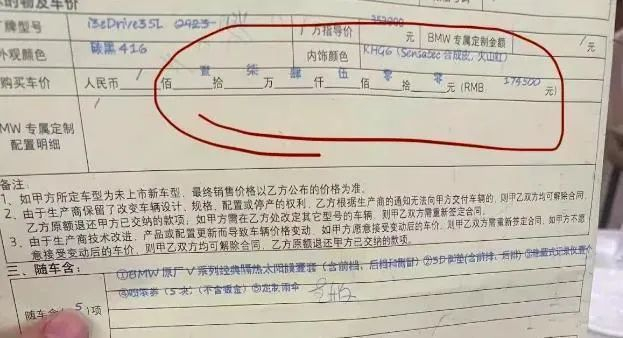 的物及车价
牌型号 i3eDrive35L 厂方指导价 353900 元 BMW 专属定制金额 / 元
外观颜色 碳黑 416 内饰颜色 KHG6 (Sensatec 合成皮, 火山红)
购买车价 人民币 / 佰 壹 拾 柒 万 肆 仟 伍 佰 零 拾 零 元 (RMB: 174500 元)
MW 专属定制
配置明细 /
备注:
1、如甲方所定车型为未上市新车型,最终销售价格以乙方公布的价格为准。
2、由于生产商保留了改变车辆设计、规格、配置或停产的权利,乙方根据生产商的通知无法向甲方交付车辆的,则甲乙双方均可解除合同,
乙方原额退还甲方已交纳的款项,如甲方需在乙方处改定其它型号的车辆,则甲乙双方需重新签定合同。
3、由于生产商技术改进、产品或配置更新而导致车辆价格变动,如甲方愿意接受变动后的车价,则甲乙双方需重新签定合同,如甲方不愿
意接受变动后的车价,则甲乙双方均可解除合同,乙方原额退还甲方已交纳的款项。
三、随车含:
①BMW 原厂 V 系列经典隔热太阳膜壹套(含前档、后档和侧窗)②3D 脚垫(含前排、后排)③隐藏式记录仪壹个
(5 次)(不含钣金)⑤定制雨伞
随车含(5)项